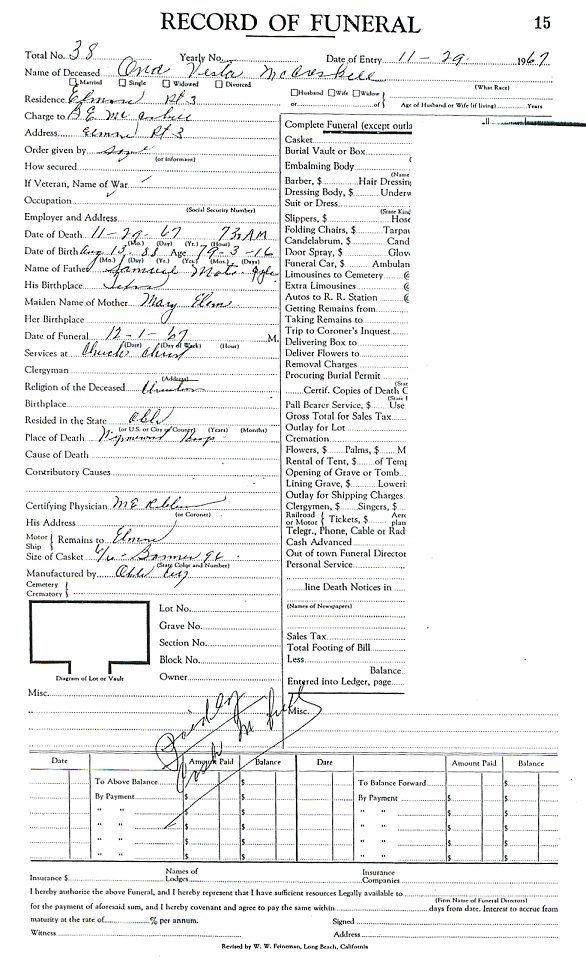 RECORD OF FUNERAL 15
Total No. 38 Yearly No. Date of Entry 11-29- 1967
Name of Deceased Ona Vesta
Married Single Widowed Divorced (What Race)
Residence Elmore Rt 3 Husband Wife Widow
or of Age of Husband or Wife (if living) Years
Charge to
Address Rt 3
Order given by
(or Informant)
How secured
If Veteran, Name of War
Occupation
(Social Security Number)
Employer and Address
Date of Death 11-29-67 AM
(Mo.) (Day) (Yr.) (Hour)
Date of Birth Aug 13, 88 Age 79-3-16
(Mo.) (Day) (Yr.) (Yrs.) (Mos.) (Days)
Name of Father Samuel
His Birthplace
Maiden Name of Mother Mary
Her Birthplace
Date of Funeral 12-1-67 M.
(Date) (Day of Week) (Hour)
Services at Church Christ
Clergyman
(Address)
Religion of the Deceased
Birthplace
Resided in the State
(or U.S. or City or County) (Years) (Months)
Place of Death
Cause of Death
Contributory Causes
Certifying Physician
(or Coroner)
His Address
Motor Ship Remains to
Size of Casket
(State Color and Number)
Manufactured by
Cemetery
Crematory
Lot No.
Grave No.
Section No.
Block No.
Owner
Diagram of Lot or Vault
Misc.
Complete Funeral (except outla
Casket
Burial Vault or Box
Embalming Body
(Name
Barber, $ Hair Dressing
Dressing Body, $ Underw
Suit or Dress
(State Kind
Slippers, $ Hose
Folding Chairs, $ Tarpau
Candelabrum, $ Cand
Door Spray, $ Glove
Funeral Car, $ Ambulan
Limousines to Cemetery @
Extra Limousines @
Autos to R. R. Station @
Getting Remains from
Taking Remains to
Trip to Coroner's Inquest
Delivering Box to
Deliver Flowers to
Removal Charges
Procuring Burial Permit
(Stat
Certif. Copies of Death C
(State F
Pall Bearer Service, $ Use
Gross Total for Sales Tax
Outlay for Lot
Cremation
Flowers, $ Palms, $ M
Rental of Tent, $ of Temp
Opening of Grave or Tomb
Lining Grave, $ Loweri
Outlay for Shipping Charges
Clergymen, $ Singers, $
Railroad or Motor Tickets, $ Aero plan
Telegr., Phone, Cable or Rad
Cash Advanced
Out of town Funeral Director
Personal Service
line Death Notices in
(Names of Newspapers)
Sales Tax
Total Footing of Bill
Less
Balance
Entered into Ledger, page
Misc.
Paid
Date Amount Paid Balance Date Amount Paid Balance
To Above Balance $ $ To Balance Forward $ $
By Payment $ By Payment $
" " $ " " $
" " $ " " $
" " $ " " $
" " $ " " $
Insurance $ Names of Lodges Insurance Companies
I hereby authorize the above Funeral, and I hereby represent that I have sufficient resources Legally available to
(Firm Name of Funeral Directors)
for the payment of aforesaid sum, and I hereby covenant and agree to pay the same within days from date. Interest to accrue from
maturity at the rate of % per annum. Signed
Witness Address
Revised by W. W. Feineman, Long Beach, California